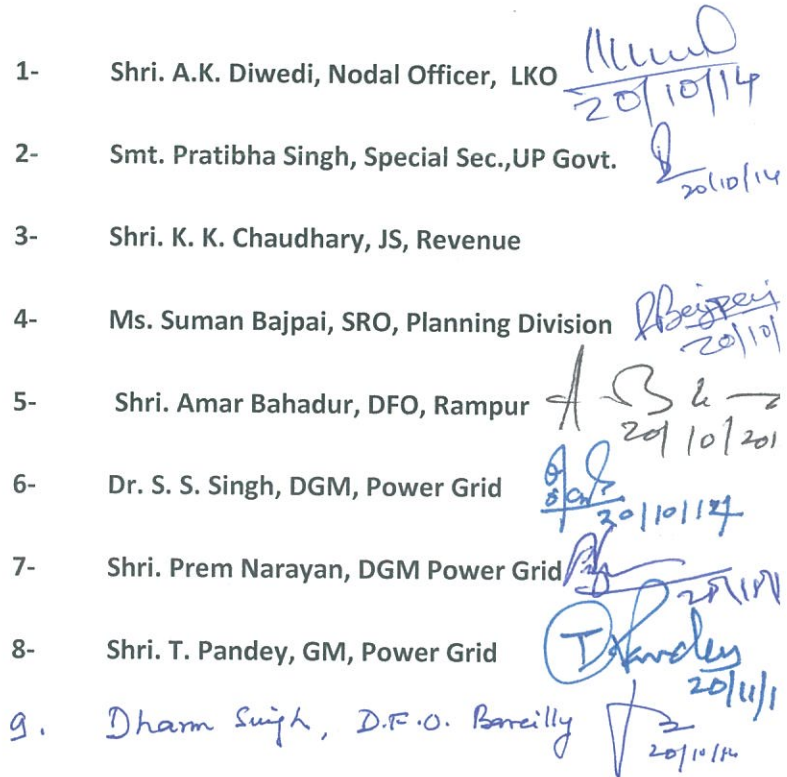 1- Shri. A.K. Diwedi, Nodal Officer, LKO
20/10/14
2- Smt. Pratibha Singh, Special Sec.,UP Govt.
20/10/14
3- Shri. K. K. Chaudhary, JS, Revenue
4- Ms. Suman Bajpai, SRO, Planning Division SBajpai
20/10/
5- Shri. Amar Bahadur, DFO, Rampur
20/10/201
6- Dr. S. S. Singh, DGM, Power Grid
7- Shri. Prem Narayan, DGM Power Grid
8- Shri. T. Pandey, GM, Power Grid TPandey
20/11/1
9. Dharm Singh, D.F.O. Bareilly
20/10/14